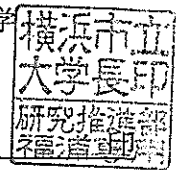 学
横浜市立
大学長印
研究推進部
福浦